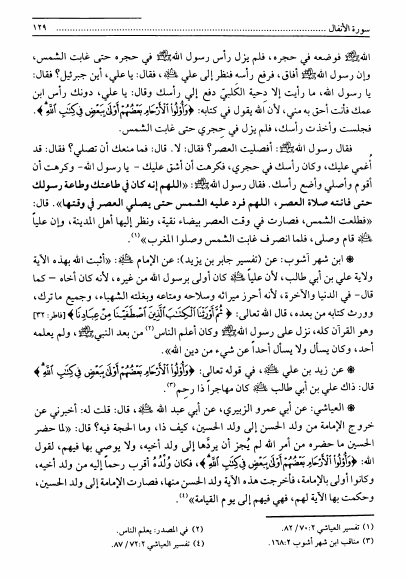 سورة الأنفال ........................................ ١٢٩
الله ﷺ فوضعه في حجره، فلم يزل رأس رسول الله ﷺ في حجره حتى غابت الشمس،
وإن رسول الله ﷺ أفاق، فرفع رأسه فنظر إلى علي ﷺ، فقال: يا علي، أين جبرئيل؟ فقال:
يا رسول الله، ما رأيت إلا دحية الكلبيّ دفع إلي رأسك وقال: يا علي، دونك رأس ابن
عمك فأنت أحق به مني، لأن الله يقول في كتابه: ﴿وَأُوْلُواْ ٱلْأَرْحَامِ بَعْضُهُمْ أَوْلَىٰ بِبَعْضٍ فِى كِتَٰبِ ٱللَّهِ﴾.
فجلست وأخذت رأسك، فلم يزل في حِجري حتى غابت الشمس.
فقال رسول الله ﷺ: أفصليت العصر؟ فقال: لا. قال: فما منعك أن تصلي؟ فقال: قد
أُغمي عليك، وكان رأسك في حجري، فكرهت أن أشق عليك - يا رسول الله- وكرهت أن
أقوم وأصلي وأضع رأسك. فقال رسول الله ﷺ: «اللهم إنه كان في طاعتك وطاعة رسولك
حتى فاتته صلاة العصر، اللهم فرد عليه الشمس حتى يصلي العصر في وقتها». قال:
«فطلعت الشمس، فصارت في وقت العصر بيضاء نقية، ونظر إليها أهل المدينة، وإن علياً
ﷺ قام وصلى، فلما انصرف غابت الشمس وصلوا المغرب»(١).
* ابن شهر آشوب: عن (تفسير جابر بن يزيد): عن الإمام ﷺ: «أثبت الله بهذه الآية
ولاية علي بن أبي طالب، لأن علياً ﷺ كان أولى برسول الله من غيره، لأنه كان أخاه – كما
قال- في الدنيا والآخرة، لأنه أحرز ميراثه وسلاحه ومتاعه وبغلته الشهباء، وجميع ما ترك،
وورث كتابه من بعده، قال الله تعالى: ﴿ثُمَّ أَوْرَثْنَا ٱلْكِتَٰبَ ٱلَّذِينَ ٱصْطَفَيْنَا مِنْ عِبَادِنَا﴾ [فاطر: ٣٢]
وهو القرآن كله، نزل على رسول الله ﷺ وكان أعلم الناس(٢) من بعد النبي ﷺ، ولم يعلمه
أحد، وكان يسأل ولا يسأل أحداً عن شيء من دين الله».
* عن زيد بن علي ﷺ، في قوله تعالى: ﴿وَأُوْلُواْ ٱلْأَرْحَامِ بَعْضُهُمْ أَوْلَىٰ بِبَعْضٍ فِى كِتَٰبِ ٱللَّهِ﴾
قال: ذاك علي بن أبي طالب ﷺ كان مهاجراً ذا رحم(٣).
* العياشي: عن أبي عمرو الزبيري، عن أبي عبد الله ﷺ، قال: قلت له: أخبرني عن
خروج الإمامة من ولد الحسن إلى ولد الحسين، كيف ذا، وما الحجة فيه؟ قال: «لما حضر
الحسين ما حضره من أمر الله لم يُجز أن يردَّها إلى ولد أخيه، ولا يوصي بها فيهم، لقول
الله: ﴿وَأُوْلُواْ ٱلْأَرْحَامِ بَعْضُهُمْ أَوْلَىٰ بِبَعْضٍ فِى كِتَٰبِ ٱللَّهِ﴾، فكان وُلدُه أقرب رحماً إليه من ولد أخيه،
وكانوا أولى بالإمامة، فأخرجت هذه الآية ولد الحسن منها، فصارت الإمامة إلى ولد الحسين،
وحكمت بها الآية لهم، فهي فيهم إلى يوم القيامة»(٤).
(١) تفسير العياشي ٧٠:٢ / ٨٢.
(٢) في المصدر: يعلم الناس.
(٣) مناقب ابن شهر آشوب ١٦٨:٢.
(٤) تفسير العياشي ٧٢:٢ / ٨٧.